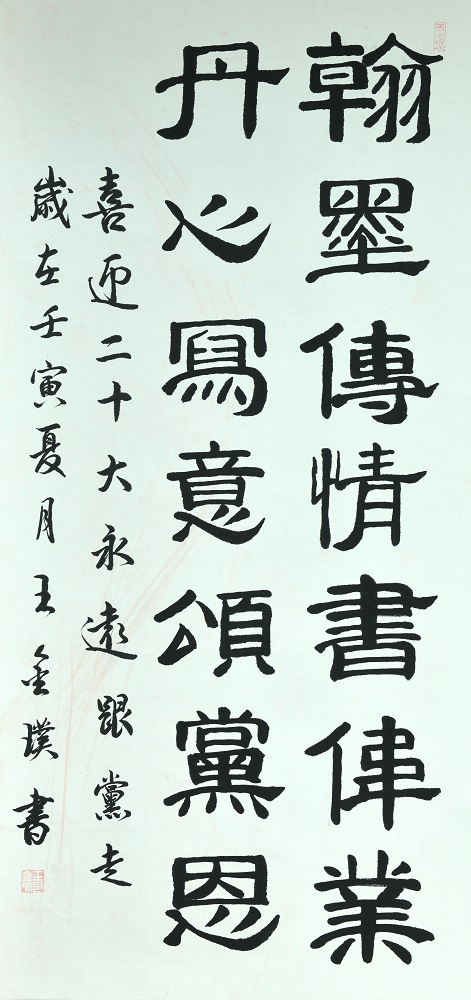 翰墨傳情書偉業
丹心寫意頌黨恩
喜迎二十大永遠跟黨走
歲在壬寅夏月王金璞書